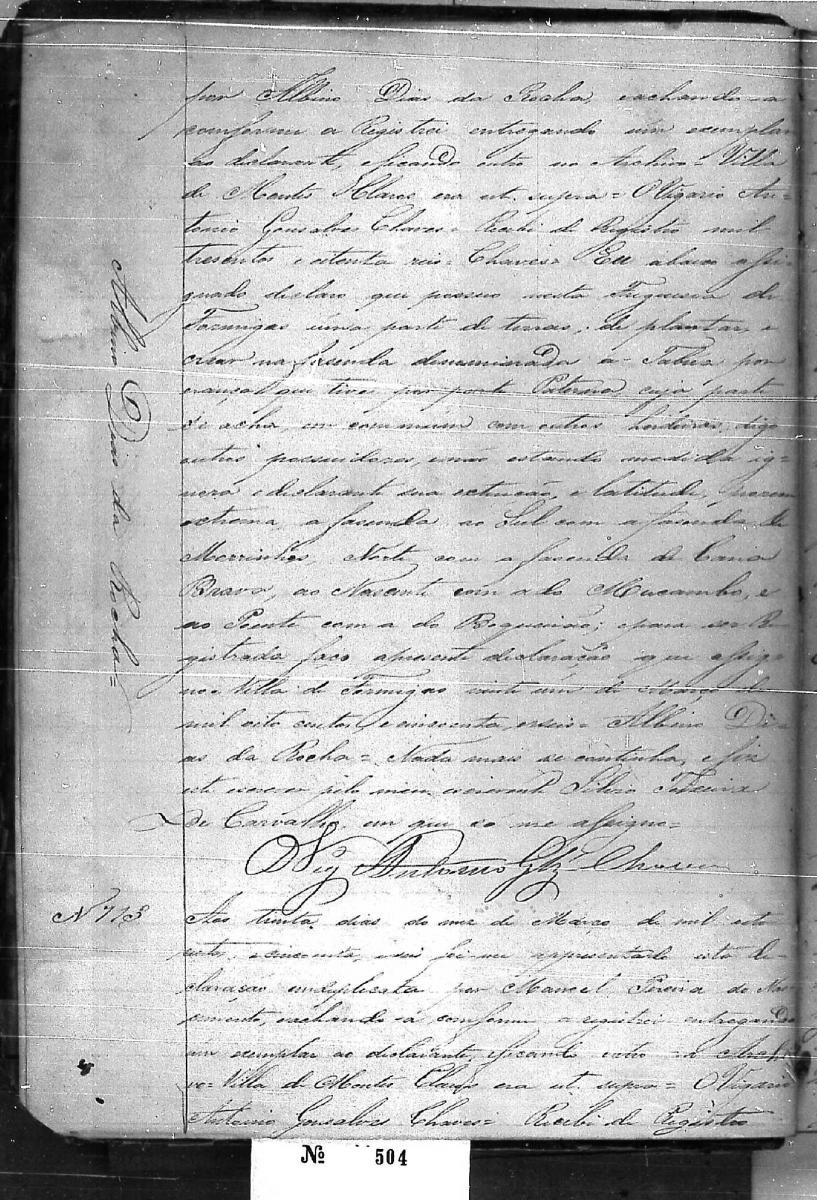 por Albino Dias da Rocha, e achando-a
comforme a Registrei entregando um exemplar
ao declarante, e ficando outro no Archivo = Villa
de Montes Claros era ut supra = O Vigario An=
tonio Gonsalves Chaves = Recebi de Registro mil
tresentos e oitenta reis = Chaves = Eu abaixo assig=
gnado declaro que possuo nesta Freguesia de
Formigas uma parte de terras, de plantar, e
crear na fasenda denuminada a = por
erança que tive por parte Paterna cuja parte
se acha em commum com outros herdeiros, digo
outros possuidores, e não estando medida ig=
nora o declarante sua extenção, e latitude, porem
extrema, a fasenda ao Sul com a fasenda de
Morrinhos, Norte com a fasenda de Cana
Brava, ao Nascente com a do Mucambo, e
ao Poente com a do Boqueirão; e para ser Re
gistrada faço apresente declaração que assig
no = Villa de Formigas vinte um de Março de
mil oito centos, e cincoenta, e seis = Albino Di=
as da Rocha = Nada mais se continha, e fiz
este escrever pelo meu escrevente Silverio Teixeira
de Carvalho em que só me assigno =
O Vigº Antonio Glz' Chaves
Albino Dias da Rocha =
Nº 713
Aos trinta dias do mez de Março de mil oito
centos, e cincoenta, e seis foi me appresentada esta de=
claração emduplicata por Manoel Pereira do Nas
cimento, e achando-a comforme a registrei entregando
um exemplar ao declarante, e ficando outro na Archi
vo = Villa de Montes Claros era ut supra = O Vigario
Antonio Gonsalves Chaves = Recebi de Registro
Nº 504